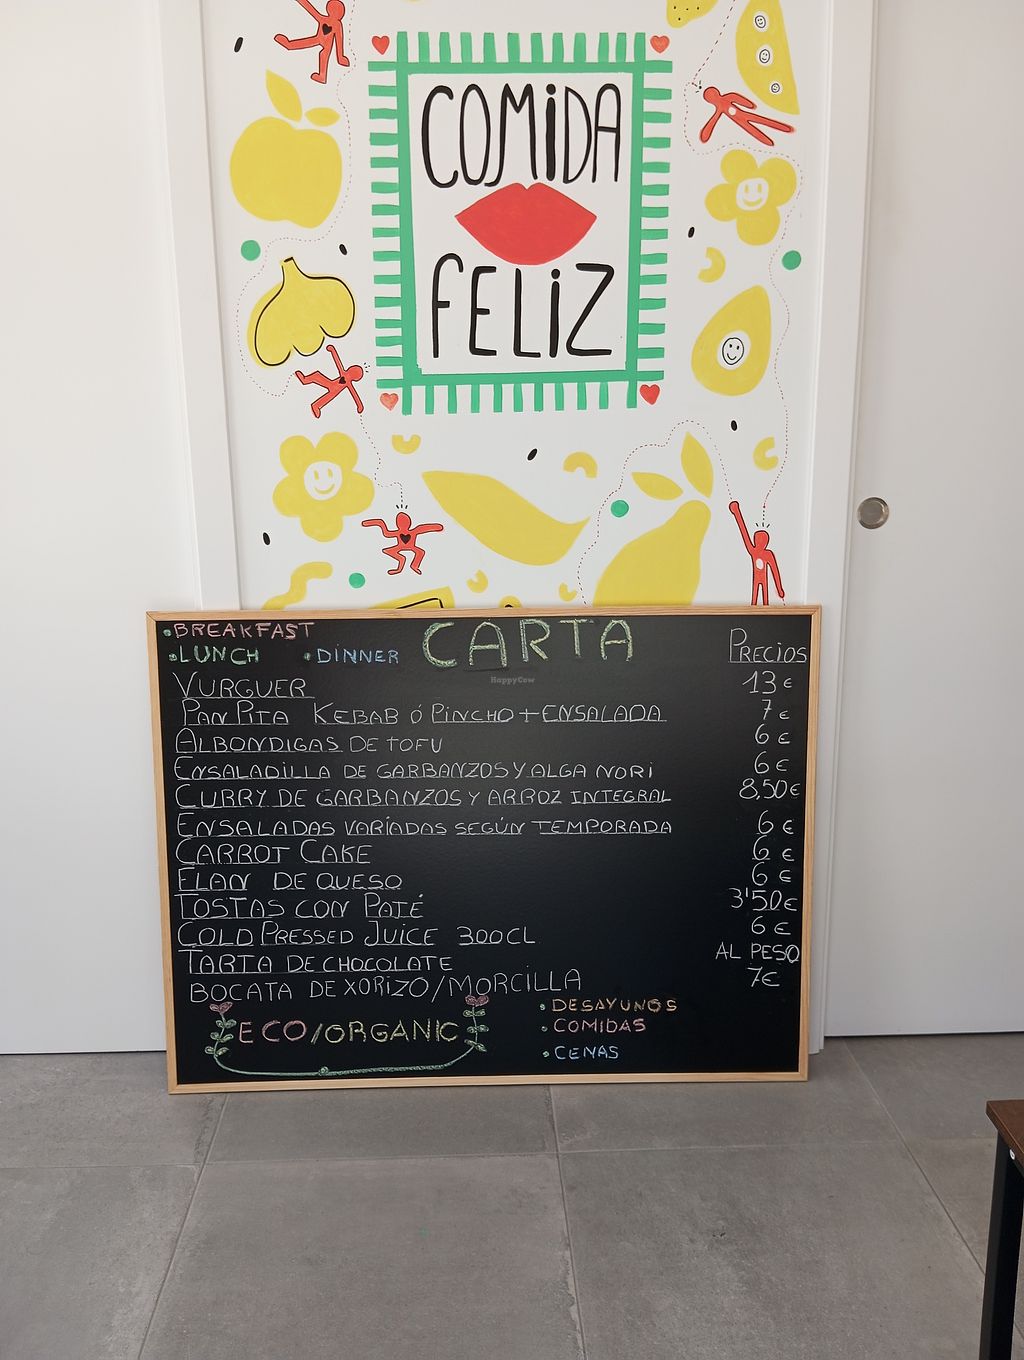 COMiDA
FELiZ
•BREAKFAST
•LUNCH •DINNER
CARTA
PRECIOS
HappyCow
VURGUER 13 €
PAN PITA KEBAB Ó PINCHO + ENSALADA 7 €
ALBONDIGAS DE TOFU 6 €
ENSALADILLA DE GARBANZOS Y ALGA NORI 6 €
CURRY DE GARBANZOS Y ARROZ INTEGRAL 8,50€
ENSALADAS VARIADAS SEGÚN TEMPORADA 6 €
CARROT CAKE 6 €
FLAN DE QUESO 6 €
TOSTAS CON PATÉ 3'50€
COLD PRESSED JUICE 300CL 6 €
TARTA DE CHOCOLATE AL PESO
BOCATA DE XORIZO/MORCILLA 7€
ECO/ORGANIC
•DESAYUNOS
•COMIDAS
•CENAS